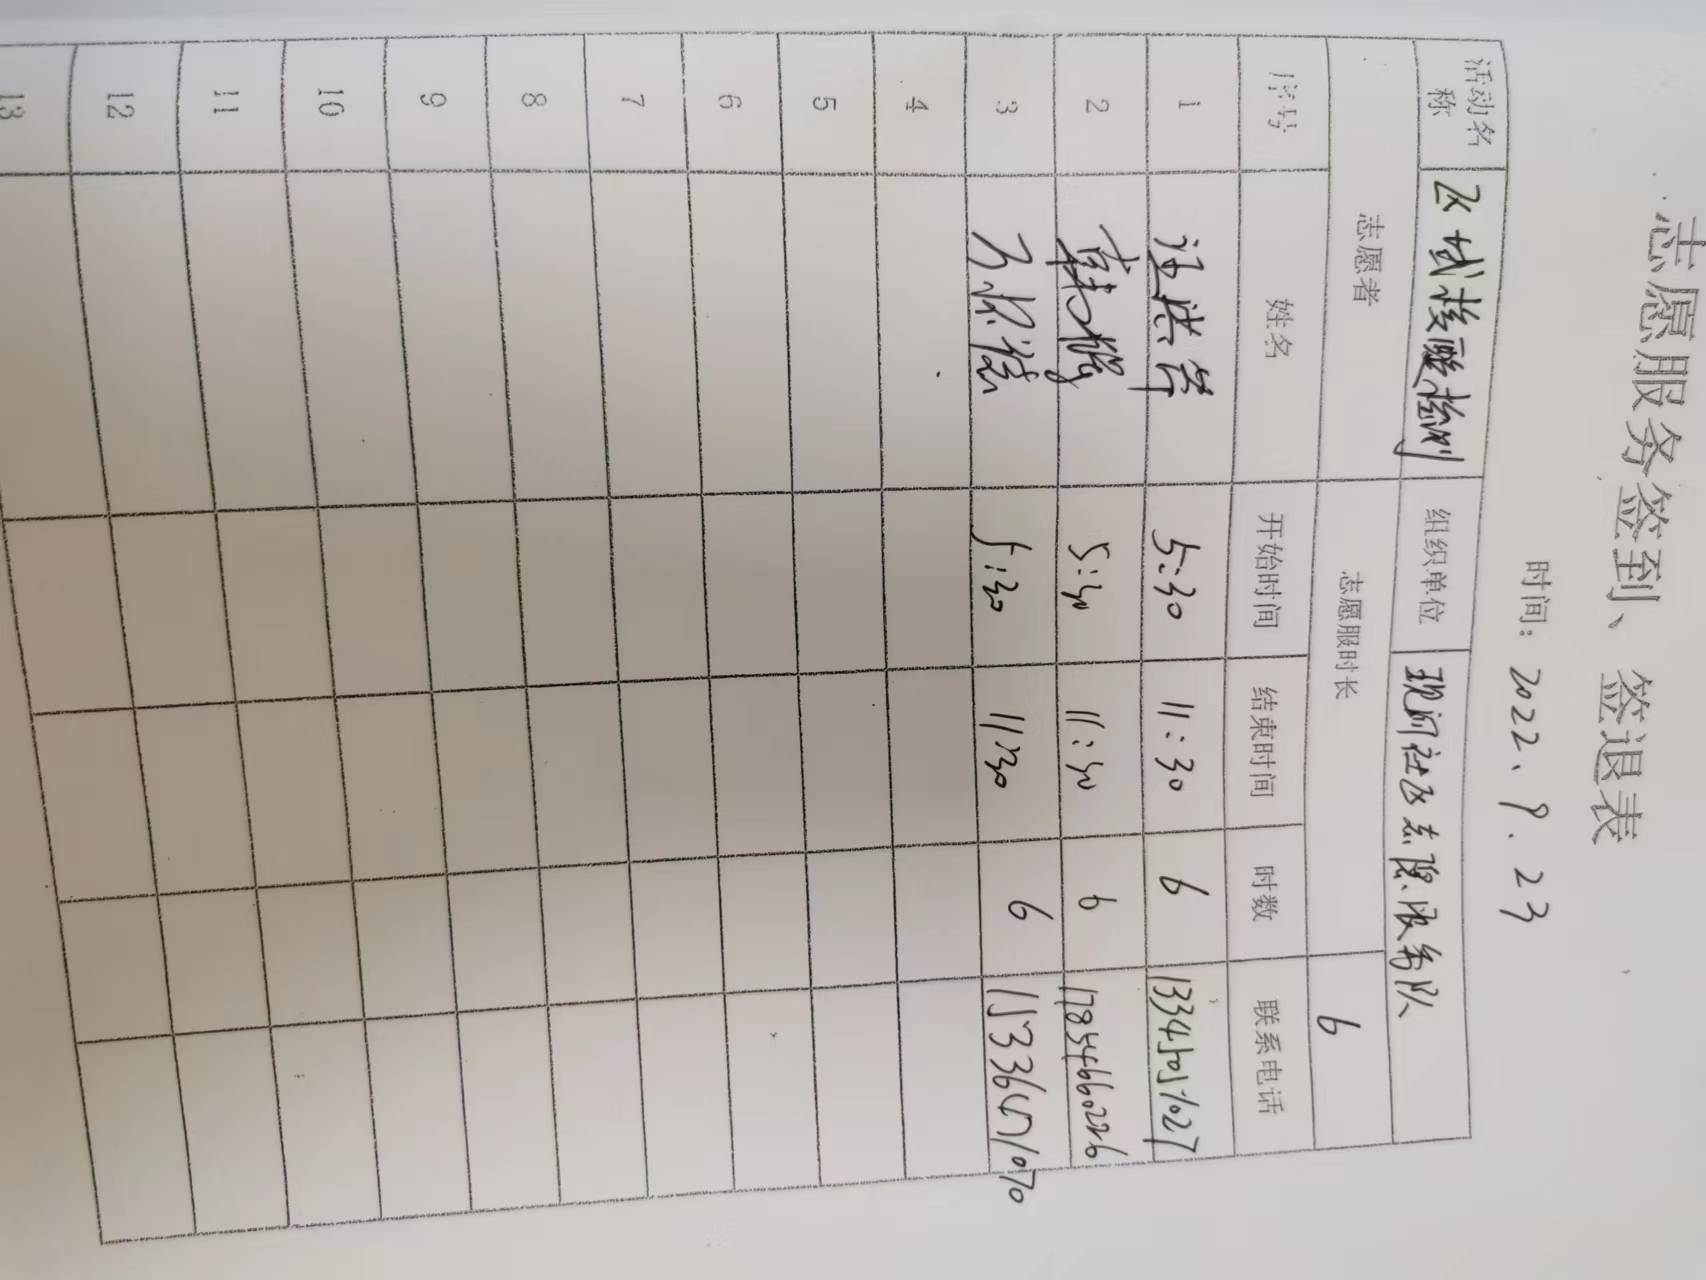 志愿服务签到、签退表
时间：2022、9.23
活动名称 区域核酸检测 组织单位 现河社区志愿服务队
志愿者 志愿服时长 6
序号 姓名 开始时间 结束时间 时数 联系电话
1 5:30 11:30 6
2 5:30 11:30 6 17854660226
3 5:30 11:30 6
4
5
6
7
8
9
10
11
12
13